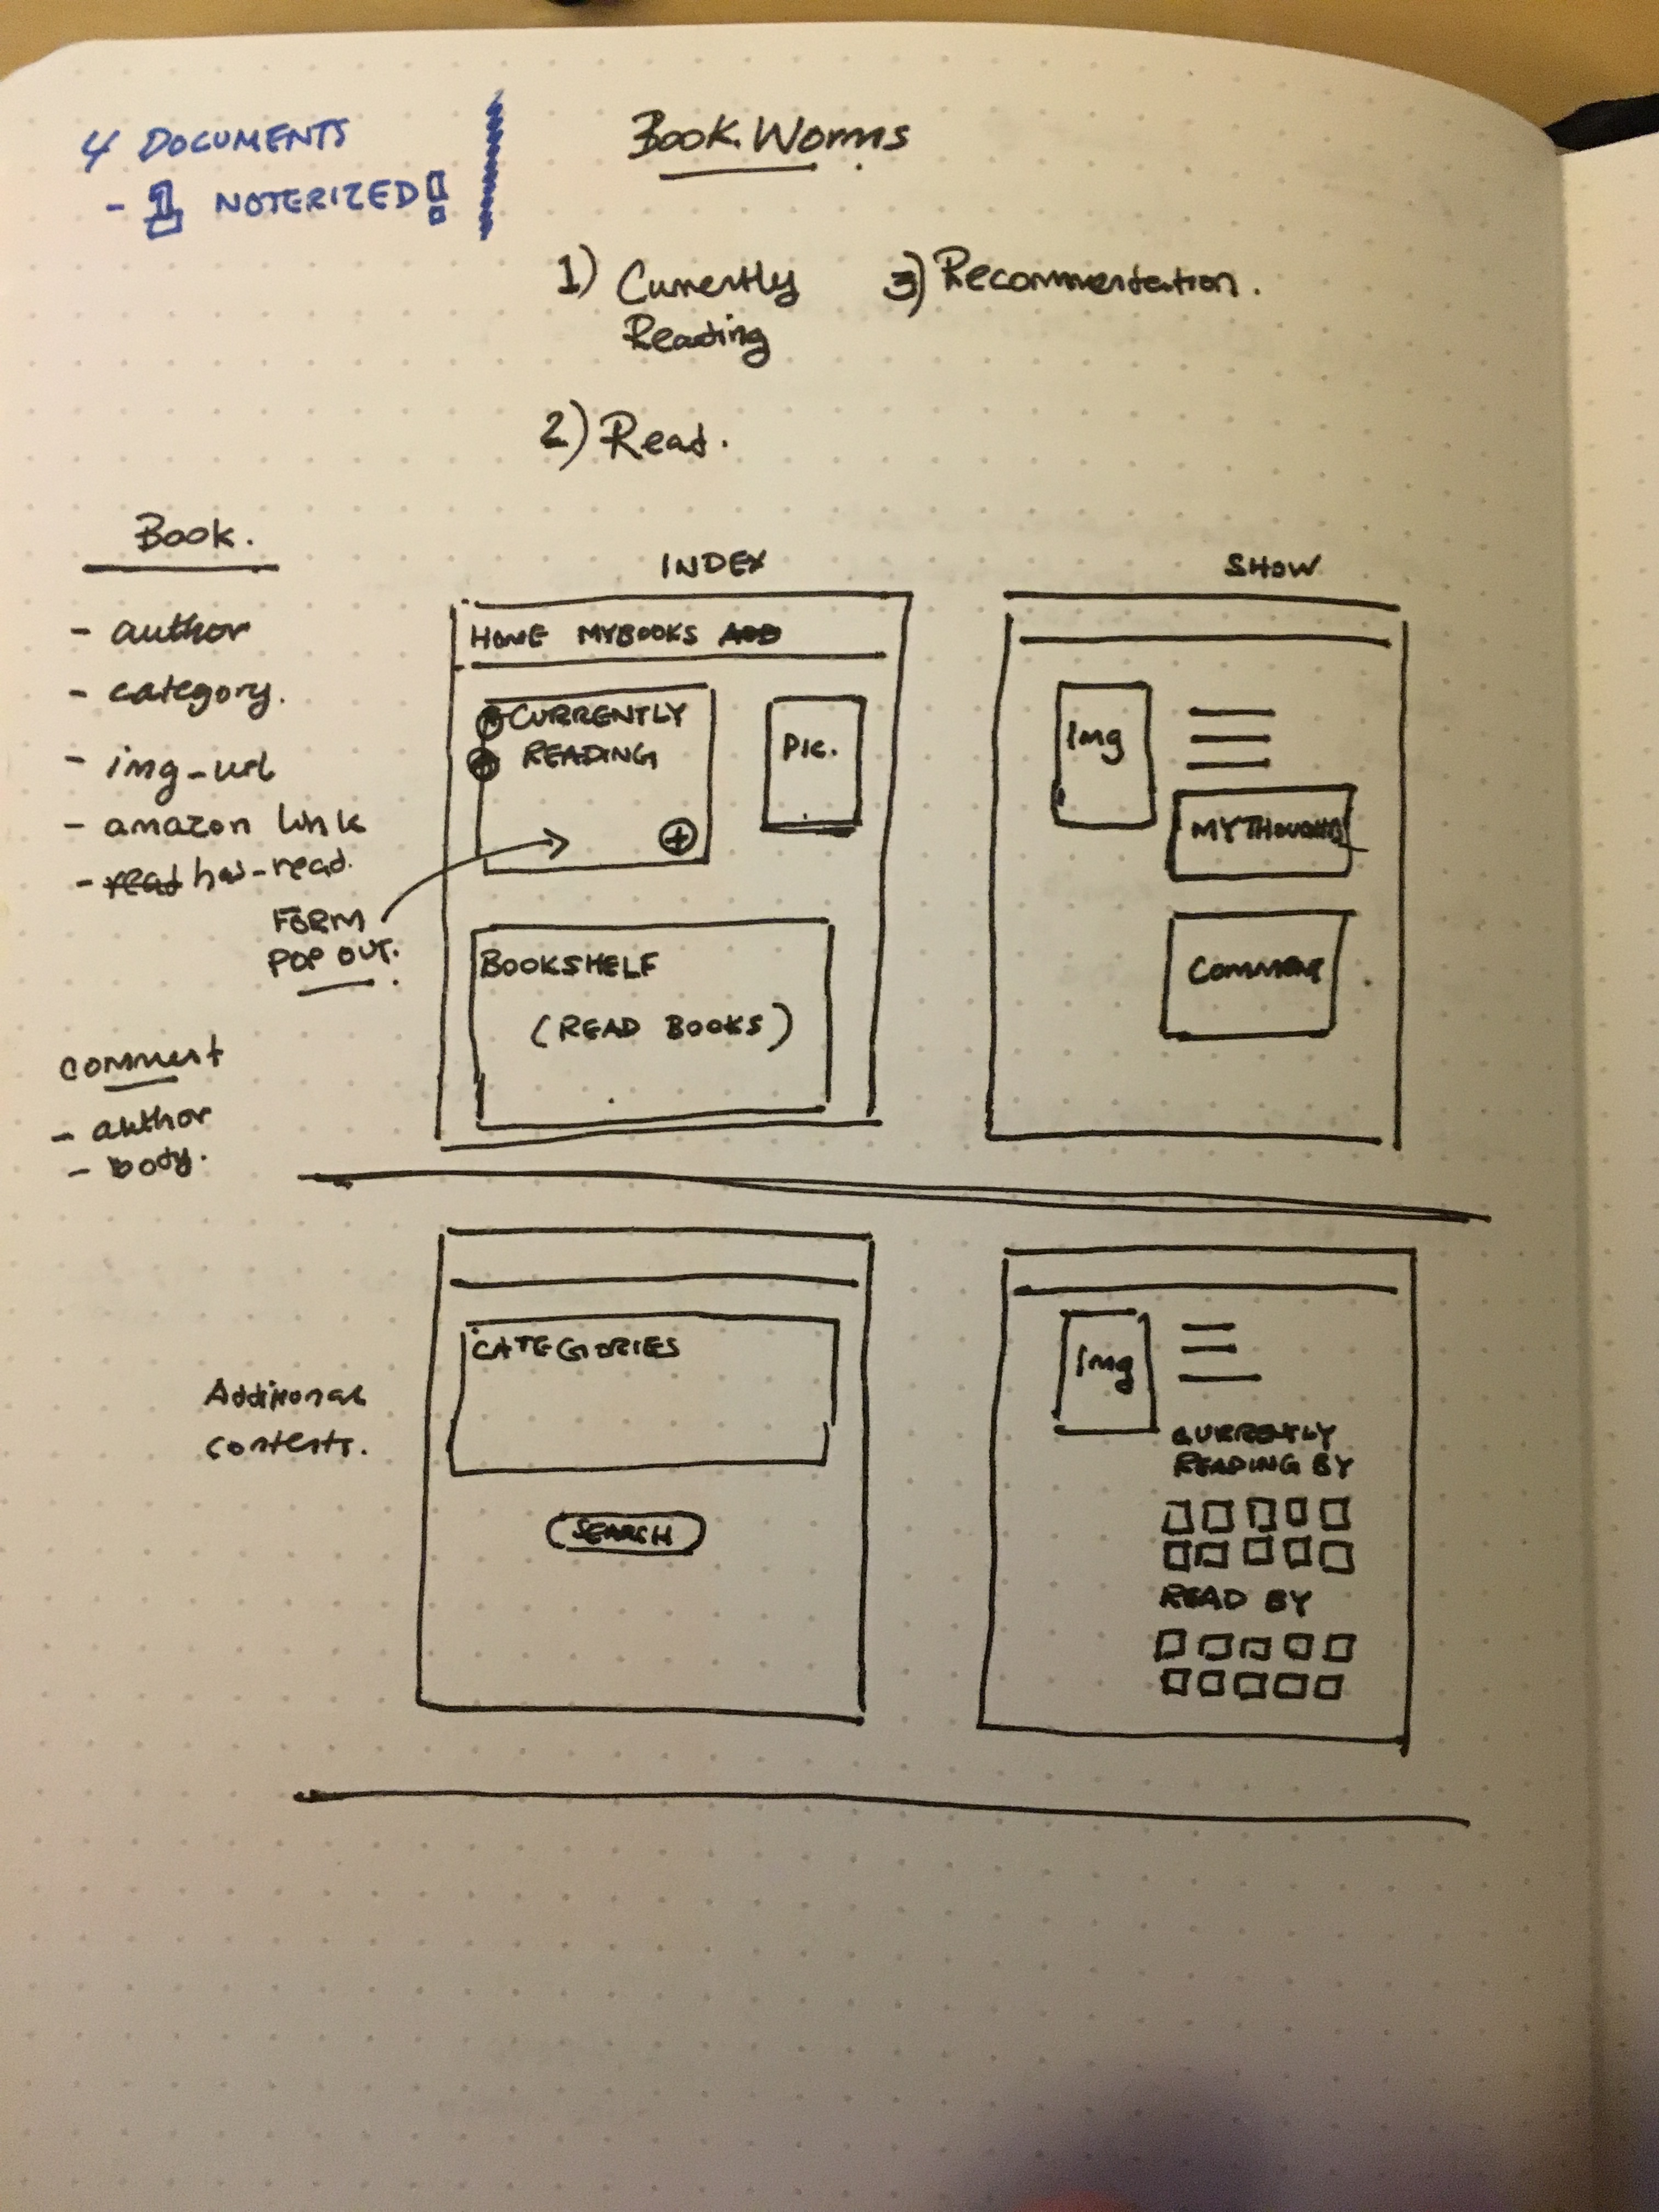 4 DOCUMENTS
- 1 NOTERIZED!
Book Worms
1) Currently
Reading
3) Recommendation.
2) Read.
Book.
- author
- category.
- img-url
- amazon link
- read has-read.
FORM
POP OUT.
comment
- author
- body.
INDEX
HOME MYBOOKS ADD
CURRENTLY
READING
+
PIC.
BOOKSHELF
(READ BOOKS)
SHOW
Img
MY THOUGHTS
COMMENT
Additional
contents.
CATEGORIES
SEARCH
Img
CURRENTLY
READING BY
READ BY